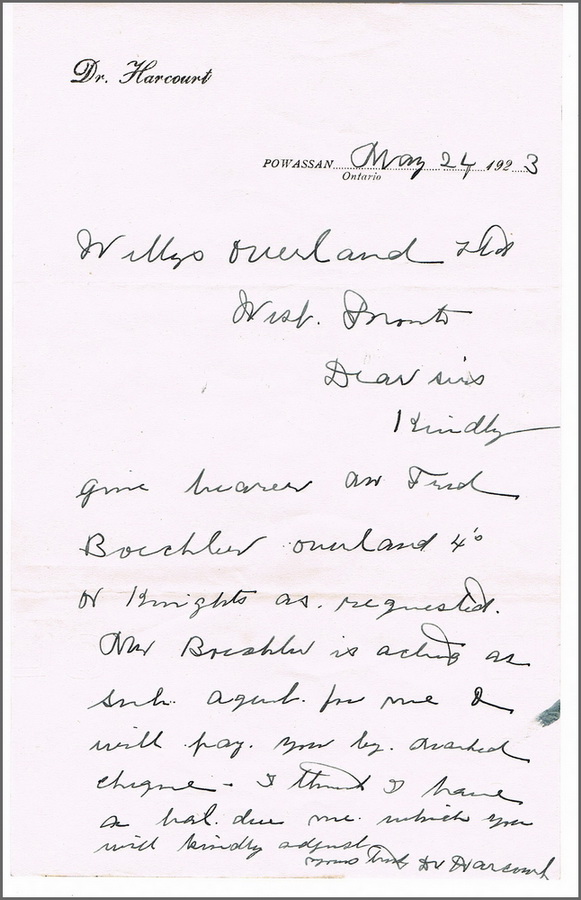 Dr. Harcourt
POWASSAN May 24 1923
Ontario
Willys Overland Ltd
West Toronto
Dear sirs
Kindly
give bearer Mr Fred
Boechler overland 4's
or Knights as requested.
Mr Boechler is acting as
sub. agent for me &
will pay you by marked
cheque - I think I have
a bal. due me which you
will kindly adjust
yours Dr Harcourt